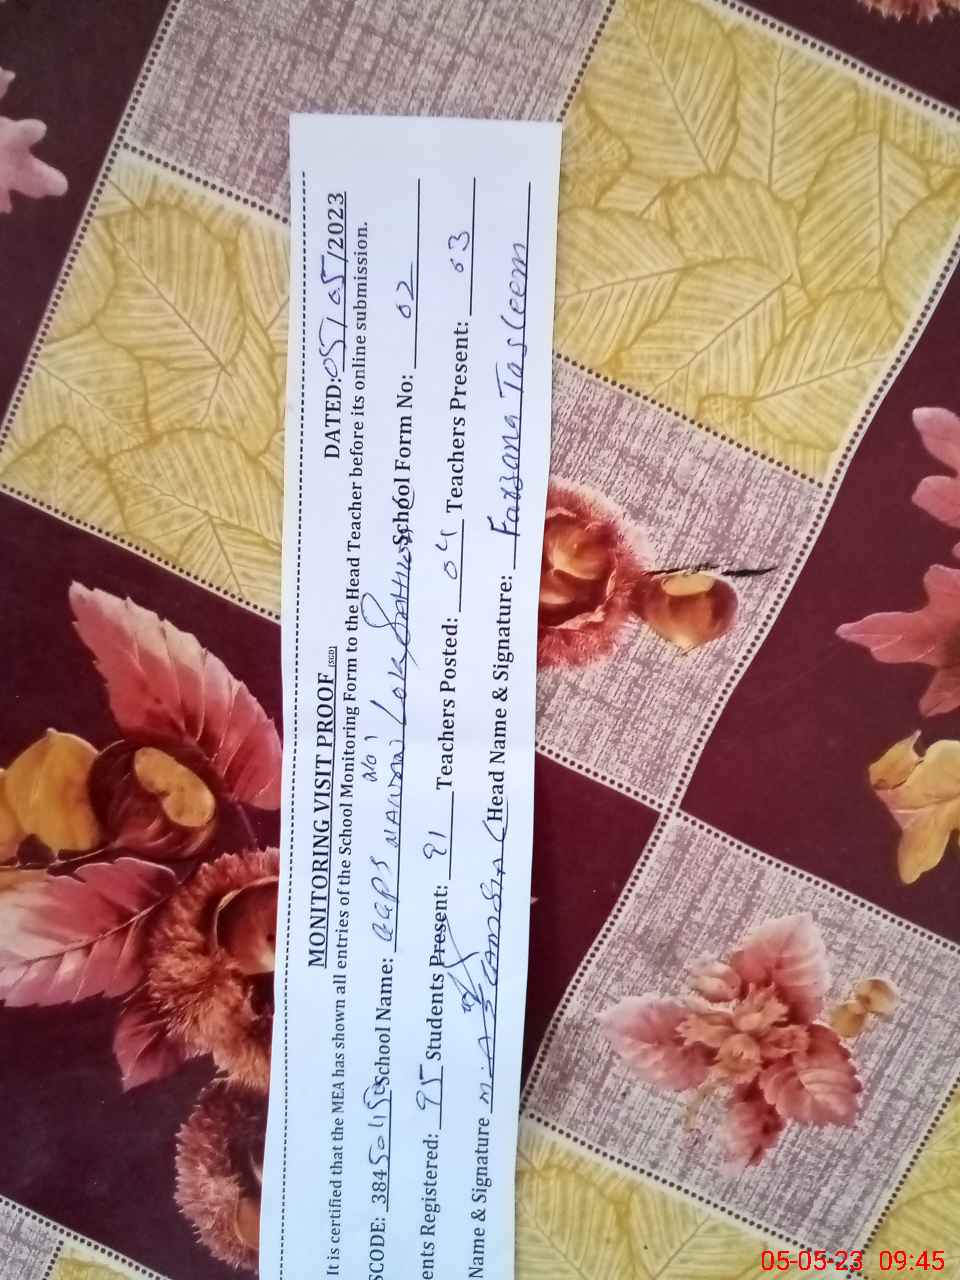 MONITORING VISIT PROOF (SGD) DATED: 05/05/2023
It is certified that the MEA has shown all entries of the School Monitoring Form to the Head Teacher before its online submission.
SCODE: School Name: GGPS School Form No: 02
ents Registered: 95 Students Present: 91 Teachers Posted: 04 Teachers Present: 03
Name & Signature Head Name & Signature: Farzana Tasleem
05-05-23 09:45